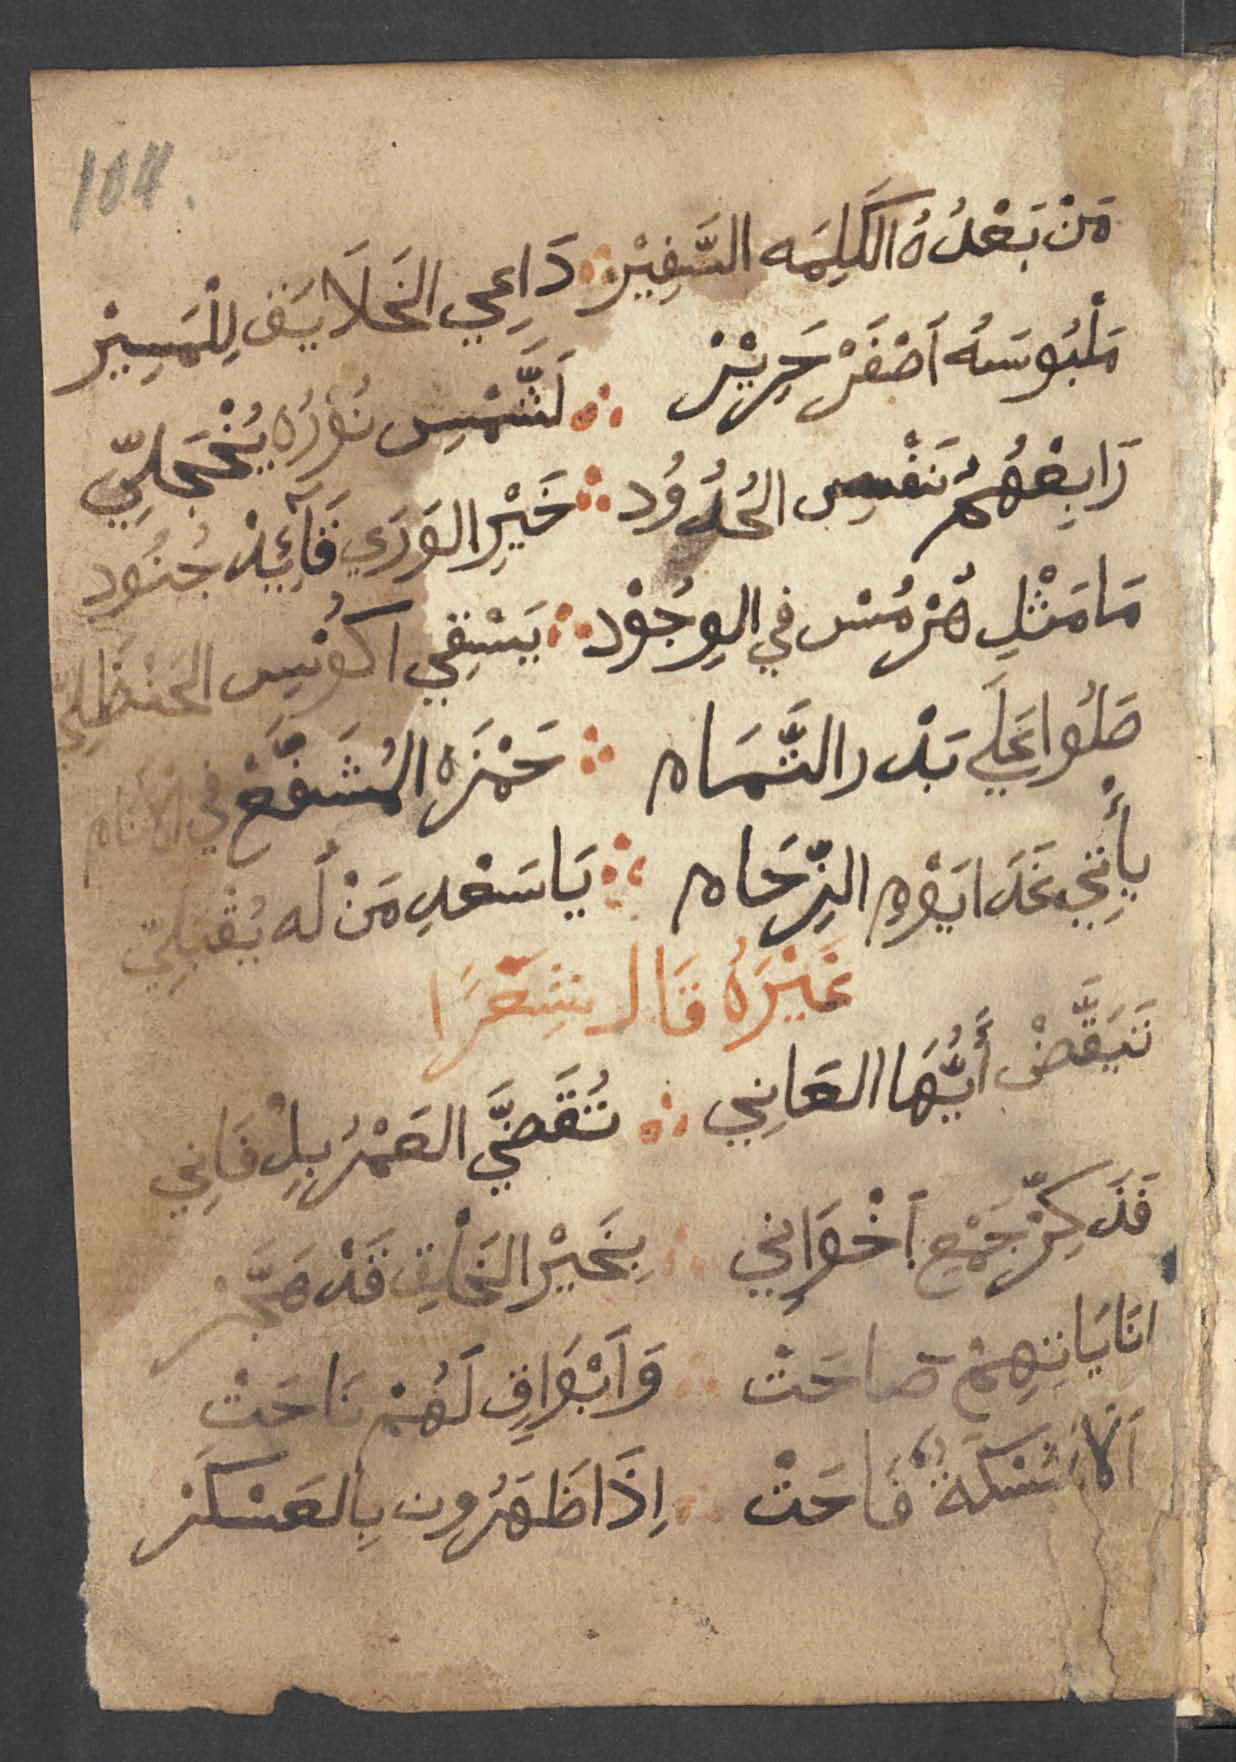 104.
مَنْ بَعْدُهُ الكَلِمَه السَّفِيْر ∴ دَاعِي الخَلَايَف لِلْمَسِيْرْ
مَلْبُوسَهُ اَصْفَرْ حَرِيْرْ ∴ لَشَّمْسِ نُوْرُه يُخْجَلِيّ
رَابِعْهُمُ نَفْسِ الحُدُوُد ∴ خَيْرِ الوَرَي قَآئِدْ جُنُود
مَا مَثْلِ هُرْمُسْ فِي الوِجُوْد ∴ يَسْقِي اكُوْسِ الحَنْظَلِيّ
صَلُوا عَلَي بَدْر التَّمَام ∴ حَمْزَهِ المُشَفَّعْ فِي الْأَنَام
يأْتِي غَدَا يَوْمِ الزِّحَام ∴ يَا سَعْدِ مَنْ لَه يُقْبَلِيّ
غَيْرَهُ قَالَ شِعْرًا
تَيَقَّضْ أَيُّهَا العَانِي ∴ تُقَضَّي العَمْرُ بِلْ فَانِي
فَذَكِّرْ جَمْعِ اَخْوَانِي ∴ بِخَيْرِ الخَلْقِ قَدْ هَجَّرْ
انَايَاتِهِمْ صَاحَتْ ∴ وَاَبْوَاقٍ لَهُمْ نَاحَتْ
اَلَا مَسْكَةٌ فَاحَتْ ∴ اِذَا ظَهَرُون بِالعَسْكَرْ